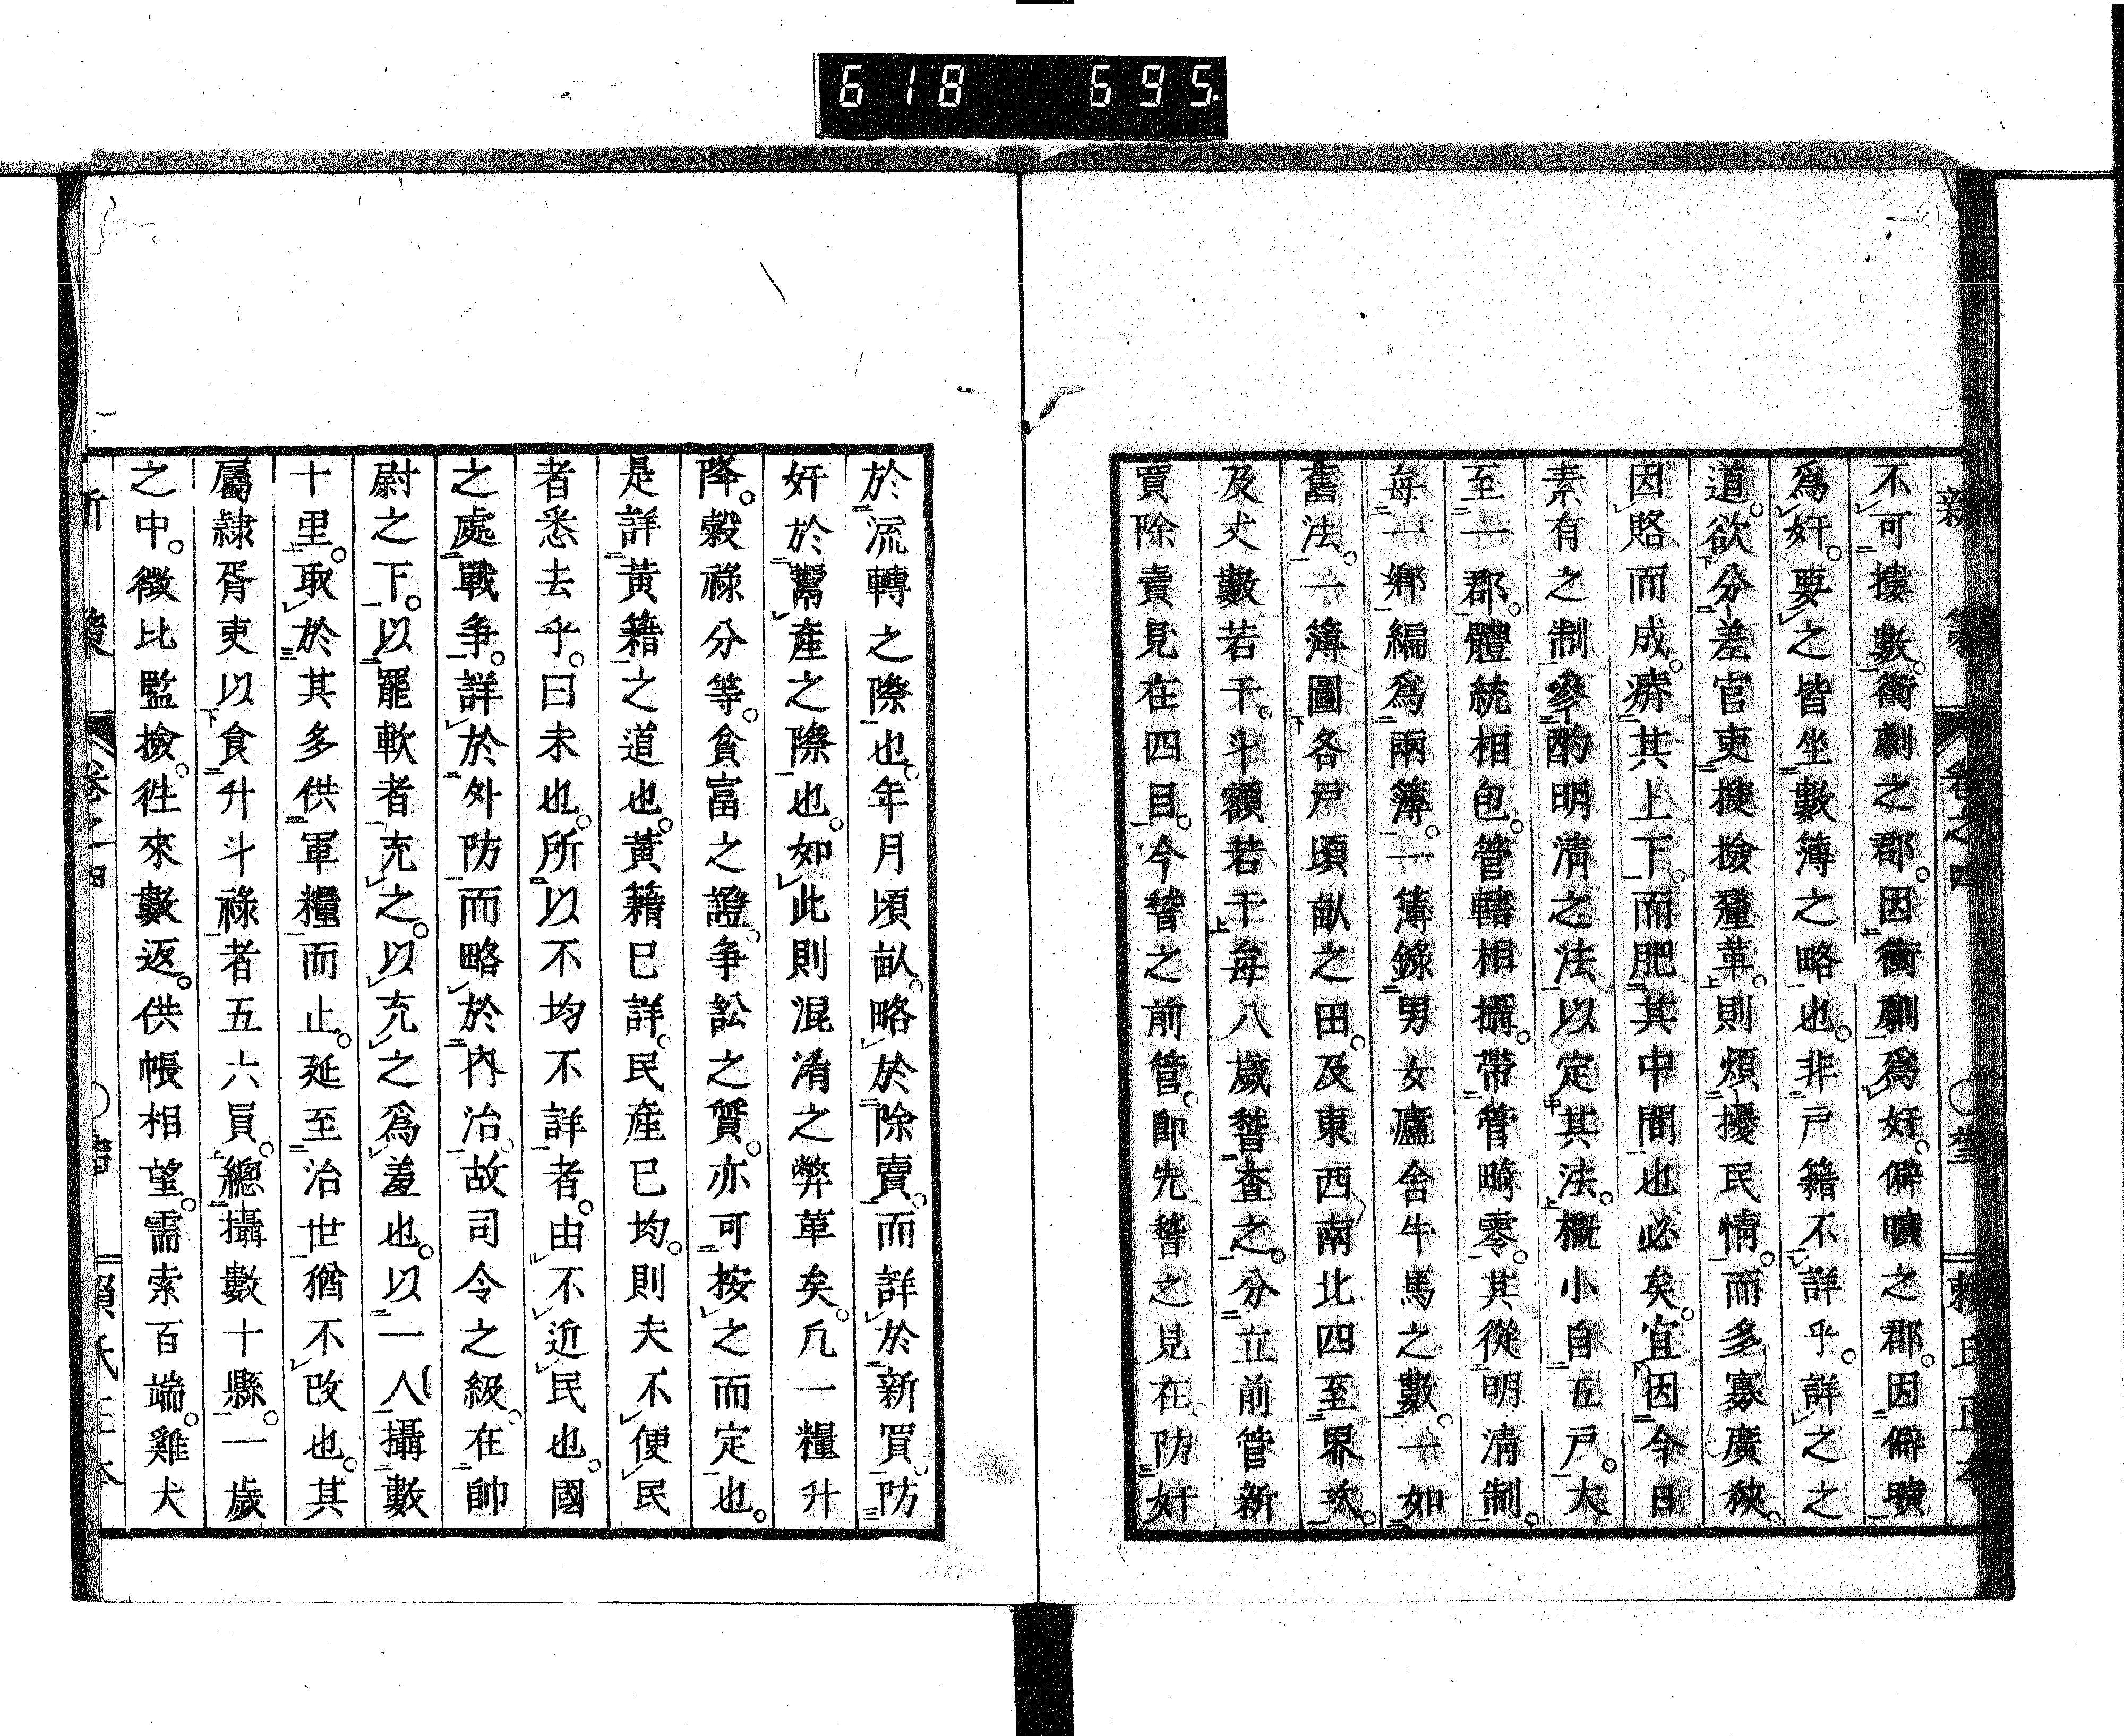 618 695
新策 卷之四 頼氏正本
不可摟數。衝劇之郡。因衝劇爲奸。僻曠之郡。因僻曠
爲奸。要之皆坐數簿之略也。非戸籍不詳乎。詳之之
道。欲分差官吏搜撿釐革。則煩擾民情。而多寡廣狹。
因賂而成。瘠其上下。而肥其中間也必矣。宜因今日
素有之制。參酌明淸之法。以定其法。概小自五戸。大
至一郡。體統相包。管轄相攝。帶管畸零。其從明淸制。
每一鄕編爲兩簿。一簿錄男女廬舍牛馬之數。一如
舊法。一簿圖各戸頃畝之田。及東西南北四至界次。
及丈數若干。斗額若干。每八歲稽査之。分立前管新
買除賣見在四目。今稽之前管。卽先稽之見在。防奸
於流轉之際也。年月頃畝。略於除賣。而詳於新買。防
奸於鬻產之際也。如此則混淆之弊革矣。凡一糧升
降。穀祿分等。貧富之證。爭訟之質。亦可按之而定也。
是詳黃籍之道也。黃籍已詳。民產已均。則夫不便民
者悉去乎。曰未也。所以不均不詳者。由不近民也。國
之處戰爭。詳於外防。而略於內治。故司令之級。在帥
尉之下。以罷軟者充之。以充之爲羞也。以一人攝數
十里。取於其多供軍糧而止。延至治世。猶不改也。其
屬隷胥吏以食升斗祿者五六員。總攝數十縣。一歲
之中。徵比監撿。徃來數返。供帳相望。需索百端。雞犬